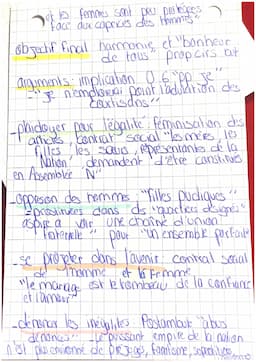 "et les femmes sont peu protégées
face aux caprices des hommes"
objectif final harmonie, et "bonheur
de tous" propcirs art
arguments: implication O.6 "pp je"
- "je n'emploierai point l'adulation des
courtisans"
- plaidoyer pour légalité: féminisation des
contrat social "les mères, les
filles, les sœurs, représentantes de la
Nation, demandent d'être constituées
en Assemblée N"
- oppression des hommes: "filles pudiques"
provinciales dans ds "quartiers désignés"
aspire a voir une chaîne d'union
fraternelle" pour "un ensemble parfait"
- se projeter dans l'avenir: contrat social
de l'homme et la Femme
"le mariage est le tombeau de la confiance
et l'amour"
- dénoncer les inégalités Postambule "abus
"le puissant empire de la nature
n'est plus environné de préjugés, fanatisme, superstition